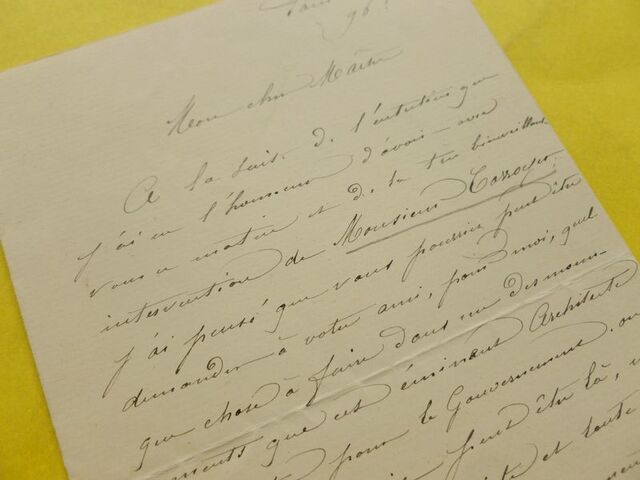 96
Mon cher Maître
A la suite de l'entretien que
j'ai eu l'honneur d'avoir avec
vous ce matin et de la très bienveillante
intervention de Monsieur Corroyer
j'ai pensé que vous pourriez peut être
demander à votre ami, pour moi, quel
que chose à faire dans un des monu-
ments que cet éminent Architecte
pour le Gouvernement. ou
peut être là, 
et toute